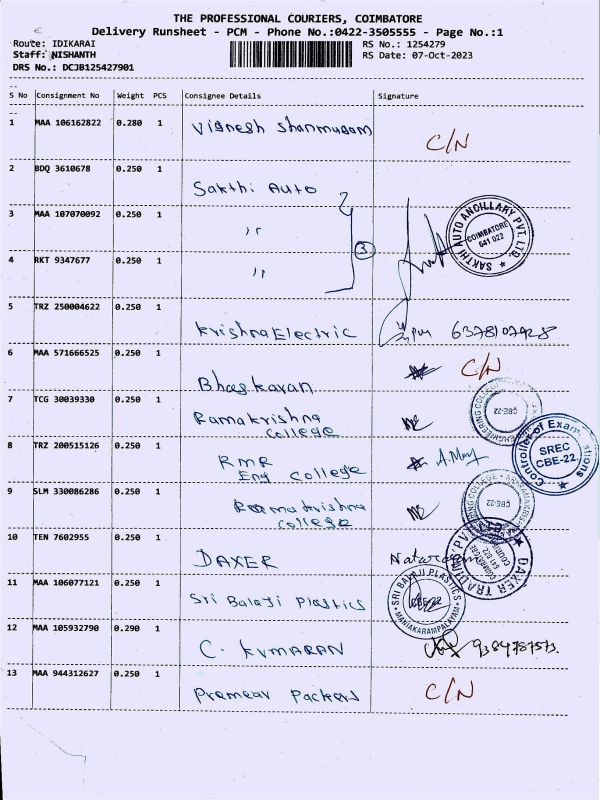 THE PROFESSIONAL COURIERS, COIMBATORE
Delivery Runsheet - PCM - Phone No.:0422-3505555 - Page No.:1
Route: IDIKARAI RS No.: 1254279
Staff: NISHANTH RS Date: 07-Oct-2023
DRS No.: DCJB125427901
S No Consignment No Weight PCS Consignee Details Signature
1 MAA 106162822 0.280 1 Vignesh Shanmugam C/N
2 BDQ 3610678 0.250 1 Sakthi Auto
3 MAA 107070092 0.250 1 ,,
SAKTHI AUTO ANCILLARY PVT. LTD. COIMBATORE 641 022
4 RKT 9347677 0.250 1 ,, 3
5 TRZ 250004622 0.250 1 Krishna Electric
6 MAA 571666525 0.250 1 Bhaskaran C/N
7 TCG 30039330 0.250 1 Ramakrishna
College
ENGINEERING COLLEGE CBE-22
8 TRZ 200515126 0.250 1 RMR
Eng College
Controller of Examinations SREC CBE-22
9 SLM 330086286 0.250 1 Ramakrishna
College
COLLEGE CBE-22
10 TEN 7602955 0.250 1 DAXER
DAXER TRADING PVT
11 MAA 106077121 0.250 1 Sri Balaji Plastics
SRI BALAJI PLASTICS CBE-22 MANIAKARAMPALAYAM
12 MAA 105932790 0.290 1 C. KUMARAN
13 MAA 944312627 0.250 1 Packers C/N